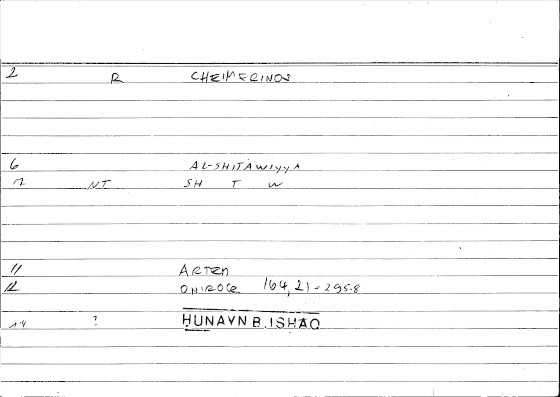 2 R CHEIMERINOS
6 AL-SHITĀWIYYA
7 NT SH T W
11 ARTEM
12 ONIROCR 164,21-295.8
14 ? ḤUNAYN B. ISḤAQ